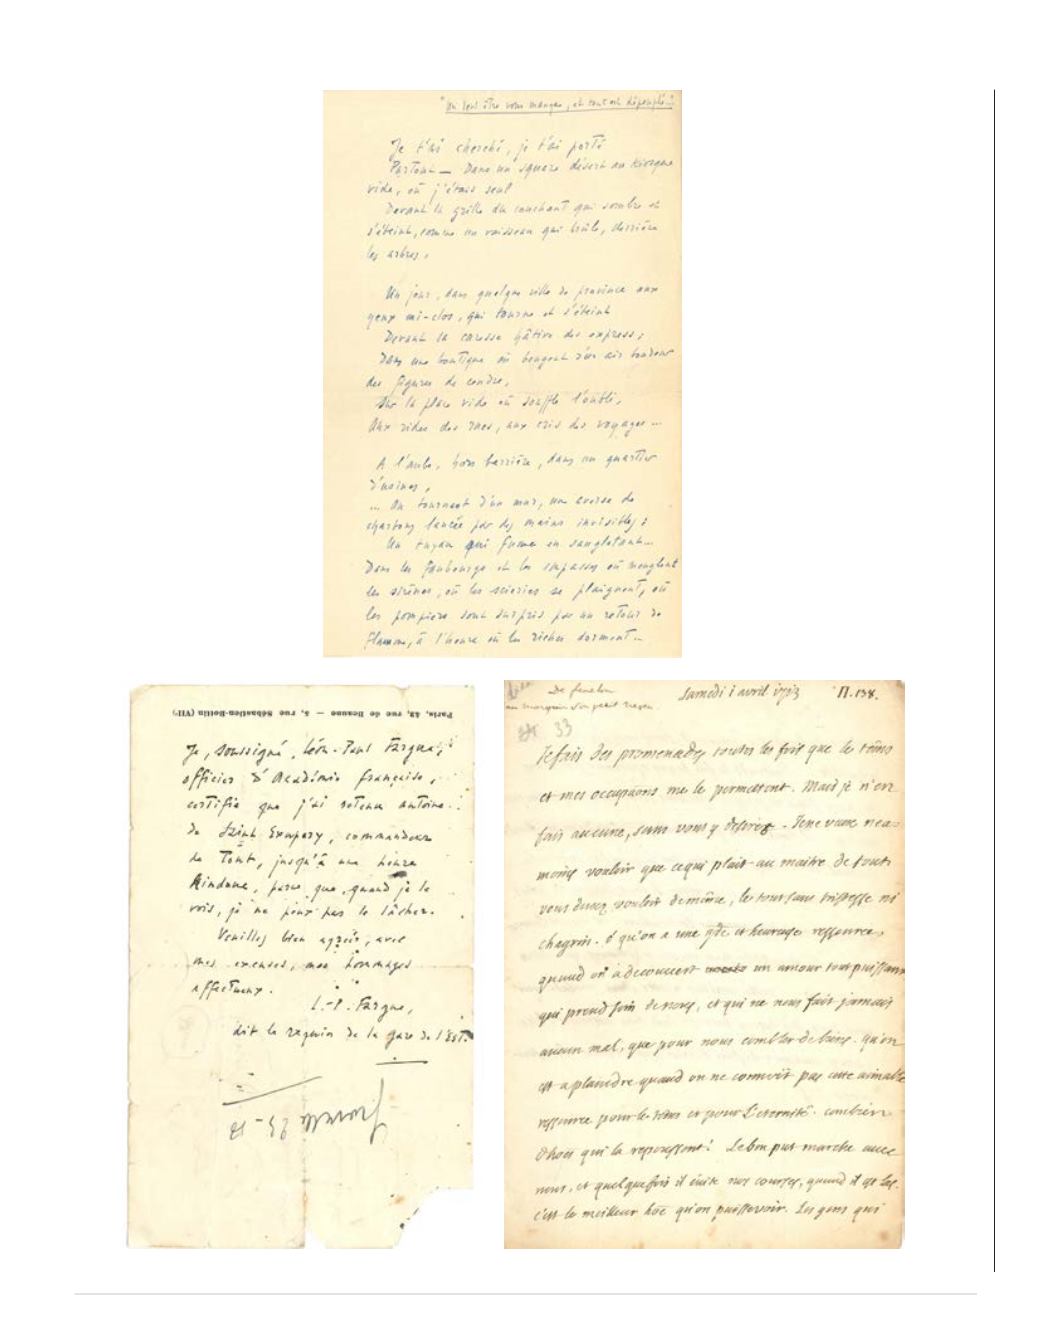 "Un seul être vous manque, et tout est dépeuplé."
Je t'ai cherché, je t'ai porté
Partout — Dans un square désert au Kiosque
vide, où j'étais seul
Devant la grille du couchant qui sombre et
s'éteint, comme un vaisseau qui brûle, derrière
les arbres,
Un jour, dans quelque ville de province aux
yeux mi-clos, qui tourne et s'éteint
Devant la caresse hâtive des express;
Dans une boutique où bougent d'un air
des figures de cendre,
Sur la place vide où souffle l'oubli,
Aux rides des rues, aux cris des voyages...
A l'aube, hors barrière, dans un quartier
d'usines,
... Au tournant d'un mur, une averse de
charbons lancée par des mains invisibles;
Un tuyau qui fume en sanglotant...
Dans les faubourgs et les impasses où meuglent
les sirènes, où les scieries se plaignent, où
les pompiers sont surpris par un retour de
flamme, à l'heure où les riches dorment...
Paris, 43, rue de Beaune — 5, rue Sébastien-Bottin (VIIe)
Je, soussigné, Léon-Paul Fargue,
officier d'Académie française,
certifie que j'ai retenu Antoine
de Saint Exupéry, commandeur
de Tout, jusqu'à une heure
Hindoue, parce que, quand je le
vois, je ne peux pas le lâcher.
Veuillez bien agréer, avec
mes excuses, mes hommages
affectueux.
L.-P. Fargue,
dit le requin de la gare de l'Est.
De fenelon
au marquis son petit neveu
Samedi 1 avril 1713
n. 138.
33
Je fais des promenades toutes les fois que le tems
et mes occupaons me le permettent. Mais je n'en
fais aucune, sans vous y desirer. Je ne veux nean-
moins vouloir que ce qui plait au maitre de tout.
vous devez vouloir de même, le tout sans tristesse ni
chagrin. O qu'on a une gde et heureuse ressource,
quand on a decouvert un amour tout puissant
qui prend soin de nous, et qui ne nous fait jamais
aucun mal, que pour nous combler de biens. qu'on
est a plaindre quand on ne connoit pas cette aimable
ressource pour le tems et pour L'eternité. combien
d'hoes qui la repoussent! Le bon put marche avec
nous, et quelquefois il evite nos courses, quand il
c'est le meilleur hoe qu'on puisse voir. Les gens qui